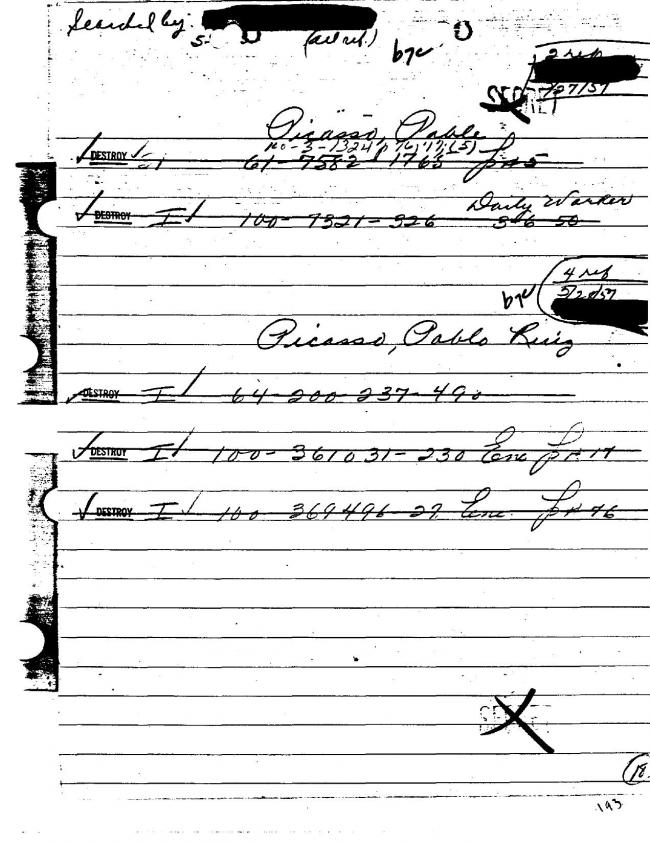 Searched by:
(all ref.)
b7c
2 ref
7/27/57
SECRET
Picasso, Pablo
100-3-1324 p 16, 17, (5)
DESTROY 61-7582-1763
DESTROY I 100-7321-326 Daily Worker 3-6-50
4 ref
b7c 5/28/57
Picasso, Pablo Ruiz
DESTROY I 64-200-237-490
DESTROY I 100-361031-230 Enc p. 17
DESTROY I 100-369496-27 Enc. p. 76
SECRET
18.
193